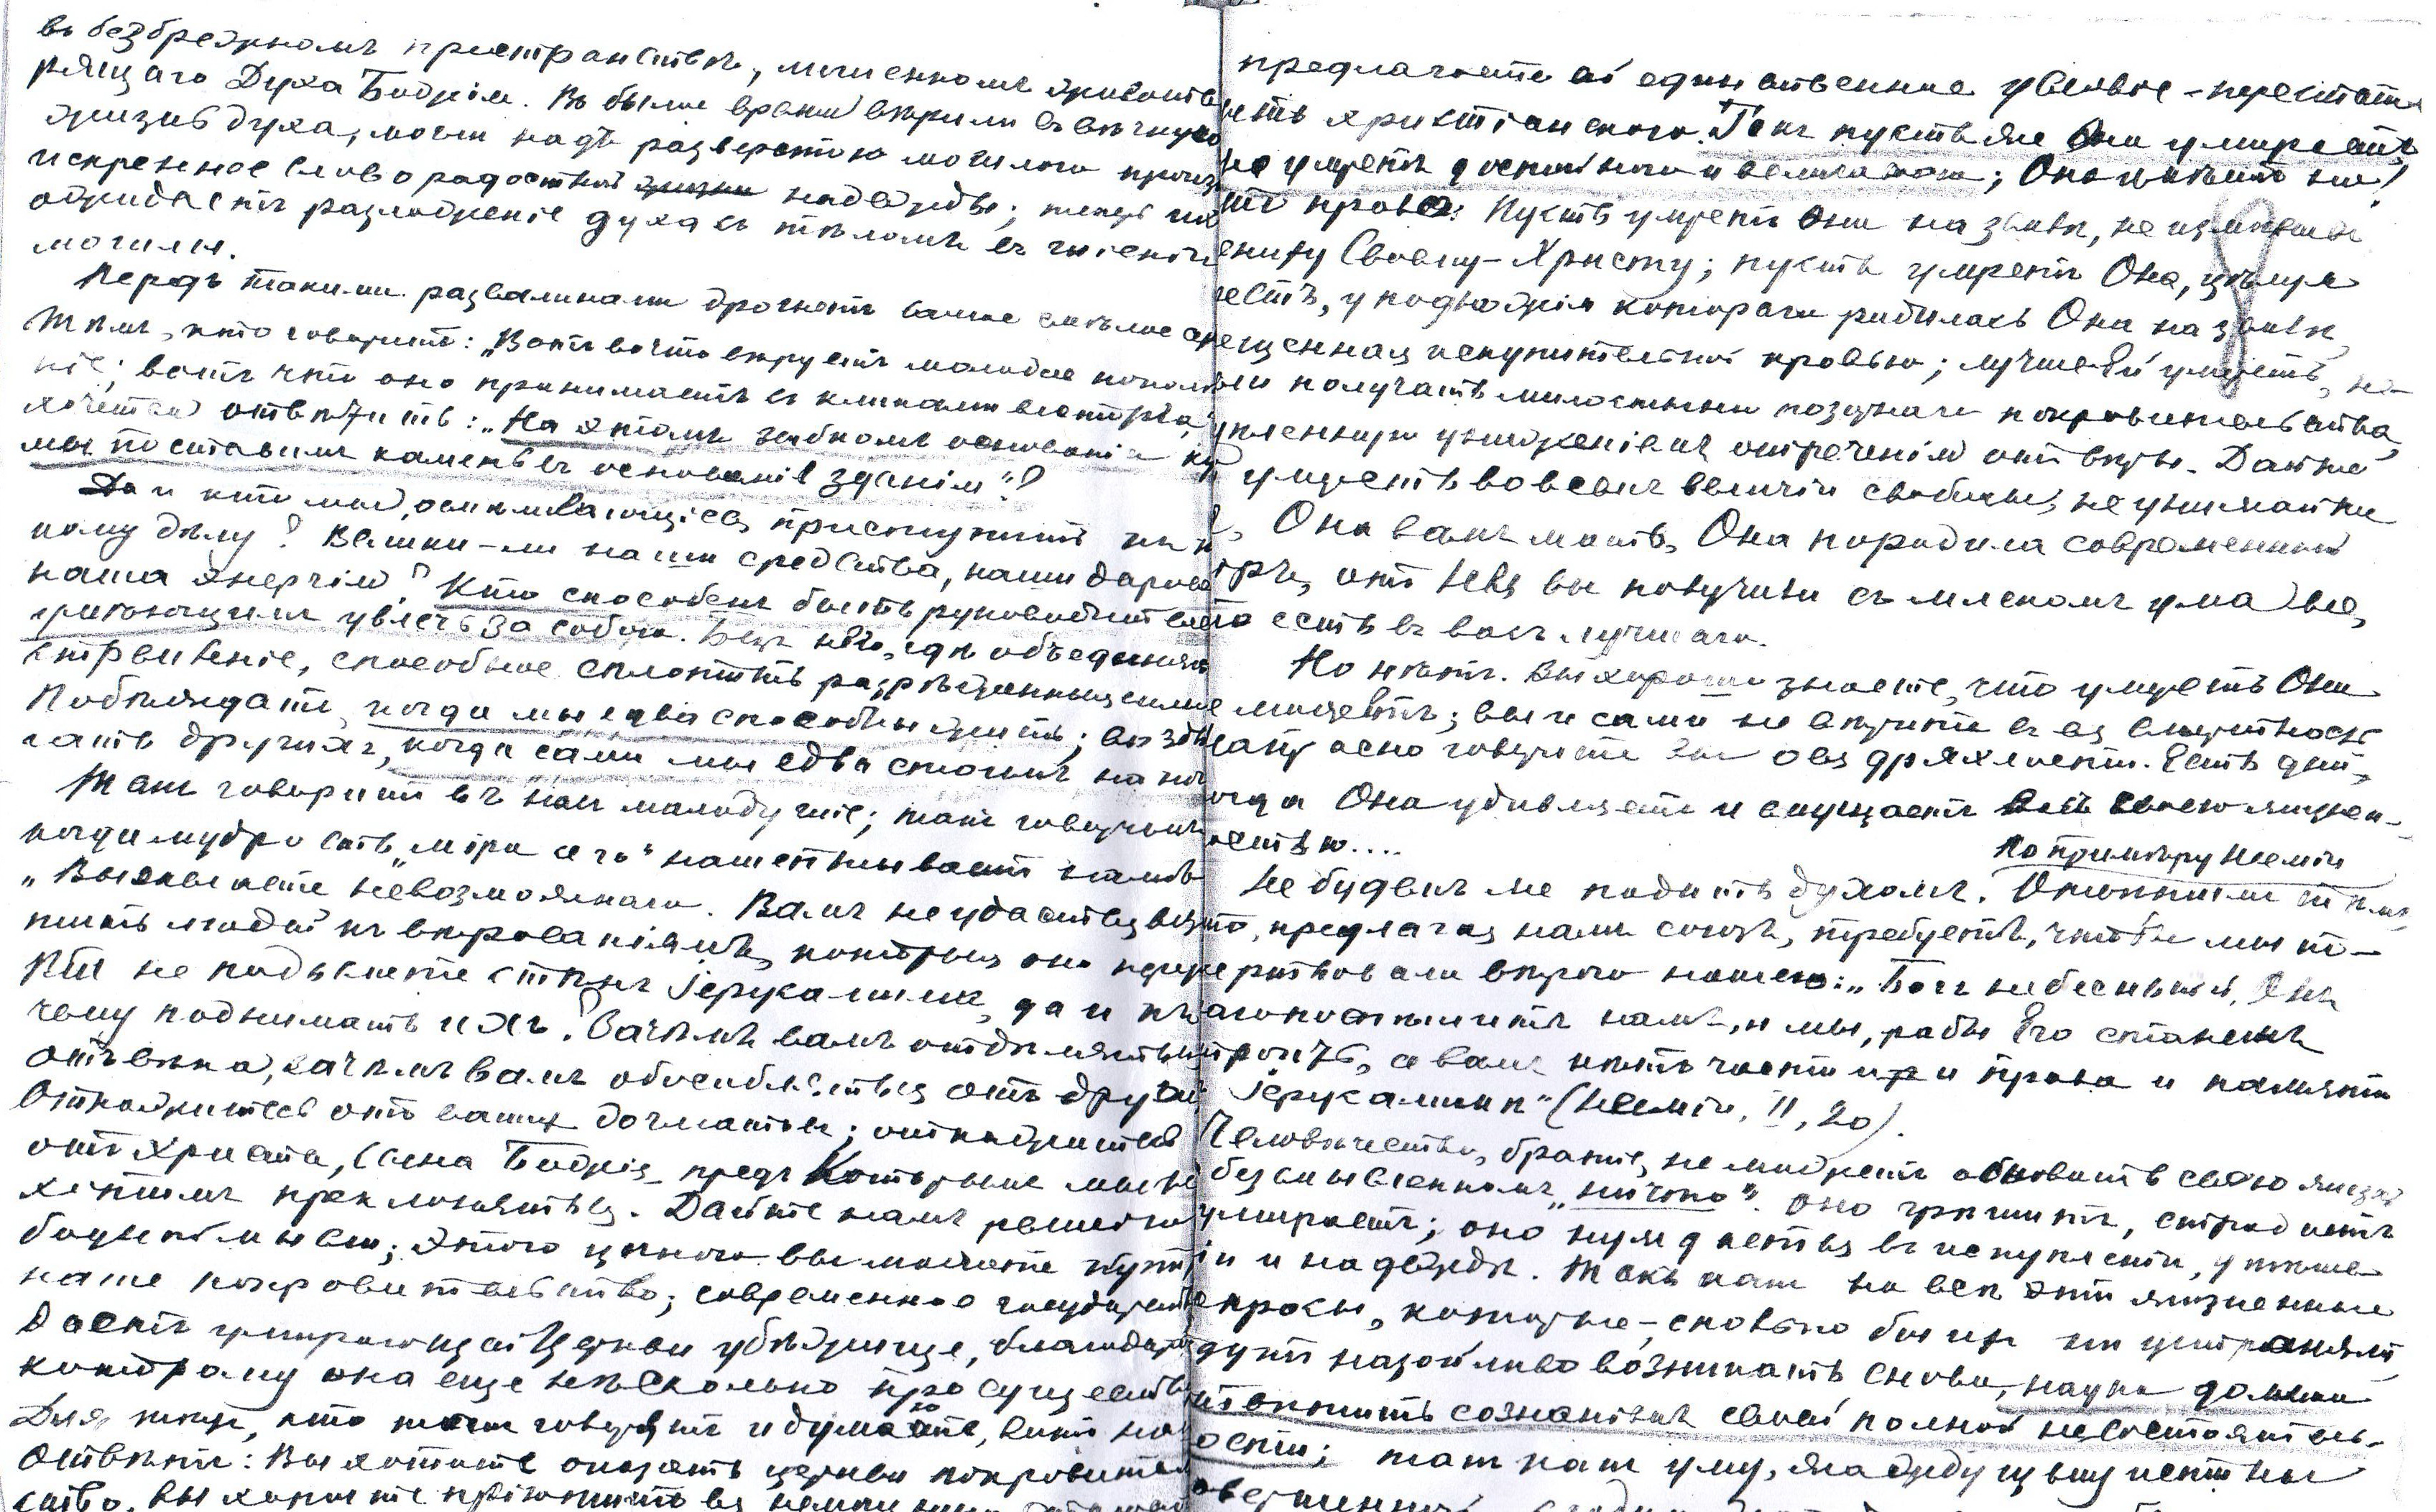 въ безбрежномъ пространствѣ, лишенномъ животво
рящаго Духа Божія. Въ былое время вѣрили въ вѣчную
жизнь духа, могли надъ разверстою могилою произ
искреннее слово радостной надежды; теперь их
ожидаетъ разложеніе духа съ тѣломъ въ гніеніи
могилы.
Передъ такими развалинами дрогнетъ самое смѣлое се
Тѣмъ, кто говоритъ: „Вотъ во что вѣруетъ молодое поколѣ
ніе; вотъ что оно принимаетъ съ кликами восторга,"
хочется отвѣтить: „На этомъ зыбкомъ основаніи
мы поставили камень въ основаніе зданія"?
Да и кто мы, осмѣливающіеся приступить къ
кому дѣлу? Велики-ли наши средства, наши дарова
наша энергія? Кто способенъ быть руководителе
умѣющимъ увлечь за собою. Безъ него, гдѣ объединя
стремленіе, способное сплотить разрозненныя силы
Побѣждать, когда мы едва способны жить; воздви
гать другихъ, когда сами мы едва стоимъ на но
Такъ говоритъ въ насъ малодушіе; такъ говоритъ
когда мудрость „міра сего" нашептываетъ намъ
„Вы желаете невозможнаго. Вамъ не удастся возв
тить людей къ вѣрованіямъ, которыя оно пере
Вы не подымете стѣнъ Іерусалима, да и къ
чему поднимать ихъ? Зачѣмъ вамъ отдѣляться
отъ вѣка, зачѣмъ вамъ обособляться отъ други
Откажитесь отъ вашихъ догматовъ; откажитесь
отъ Христа, Сына Божія, предъ Которымъ мы не
хотимъ преклоняться. Дайте намъ религію
будней мысли; этою цѣною вы можете купить
наше покровительство; современное государство
Даетъ умирающей Церкви убѣжище, благодаря
которому она еще нѣсколько просуществуе
Для тѣхъ, кто такъ говоритъ и думаетъ, вотъ на
Отвѣтъ: Вы хотите оказать церкви покровитель
ство, вы хотите
предлагаете ей единственное условіе - перестать
быть христіанскою. Такъ пусть же Она умираетъ,
но умретъ достойно и величаво; Она имѣетъ на
это право. Пусть умретъ Она на землѣ, не измѣнивъ
ениху Своему - Христу; пусть умретъ Она, цѣлуя
крестъ, у подножія котораго родилась Она на землѣ,
священная искупительной кровью; лучше Ей умереть, не-
жели получать милостыню позднаго покровительства,
купленную униженіемъ отреченія отъ вѣры. Дайте
Ей умереть во всемъ величіи свободы, не унижайте
Она вамъ мать, Она породила современный
міръ, отъ Нея вы получили съ млекомъ ума все,
что есть въ васъ лучшаго.
Но нѣтъ. Вы хорошо знаете, что умереть Она
не можетъ; вы и сами не вѣрите въ ея смертность
напрасно говорите вы о ея дряхлости. Есть дни,
когда Она удивляетъ и смущаетъ васъ своею жизнен-
ностью....
По примѣру Нееміи
Не будемъ же падать духомъ. Отвѣтимъ тѣмъ,
кто, предлагая намъ союзъ, требуетъ, чтобы мы по-
жертвовали вѣрою нашею: „Богъ небесный, Онъ
благопоспѣшитъ намъ, и мы, рабы Его станемъ
строить, а вамъ нѣтъ части и права и памяти
въ Іерусалимѣ" (Нееміи, II, 20).
Человѣчество, братіе, не можетъ обновить свою жизнь
безсмысленнымъ „ничто". оно грѣшитъ, страдаетъ
умираетъ; оно нуждается въ искупленіи, утѣше-
ніи и надеждѣ. Такъ какъ на всѣ эти жизненные
вопросы, которые, сколько бы ихъ ни устраняли,
будутъ назойливо возникать снова, наука должна
отвѣтить сознаніемъ своей полной несостоятель-
ности; такъ какъ уму, жаждущему истины